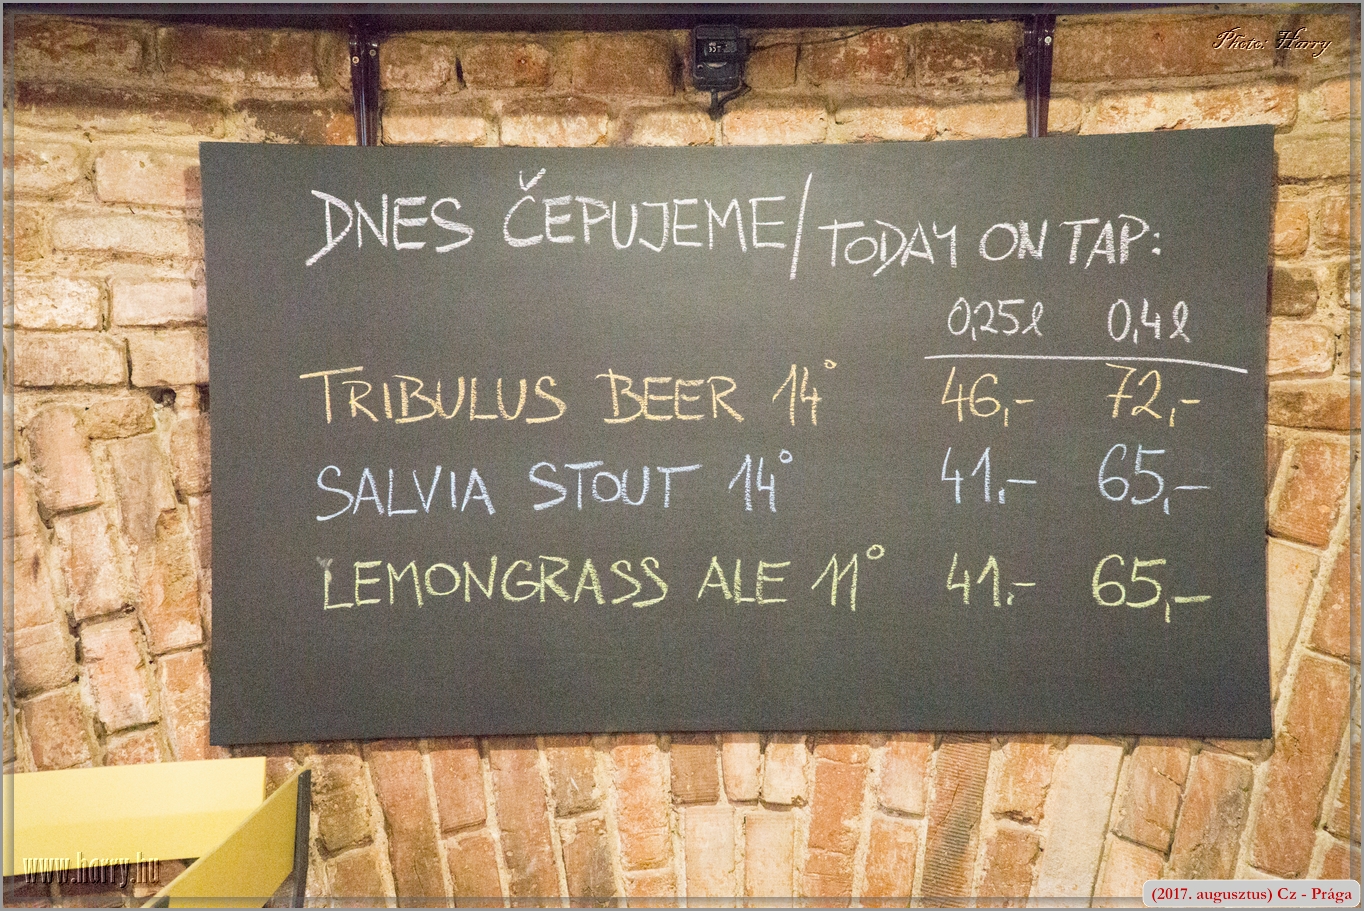 Photo: Harry
DNES ČEPUJEME/TODAY ON TAP:
0,25l 0,4l
TRIBULUS BEER 14° 46,- 72,-
SALVIA STOUT 14° 41,- 65,-
LEMONGRASS ALE 11° 41,- 65,-
www.harry.hu
(2017. augusztus) Cz - Prága